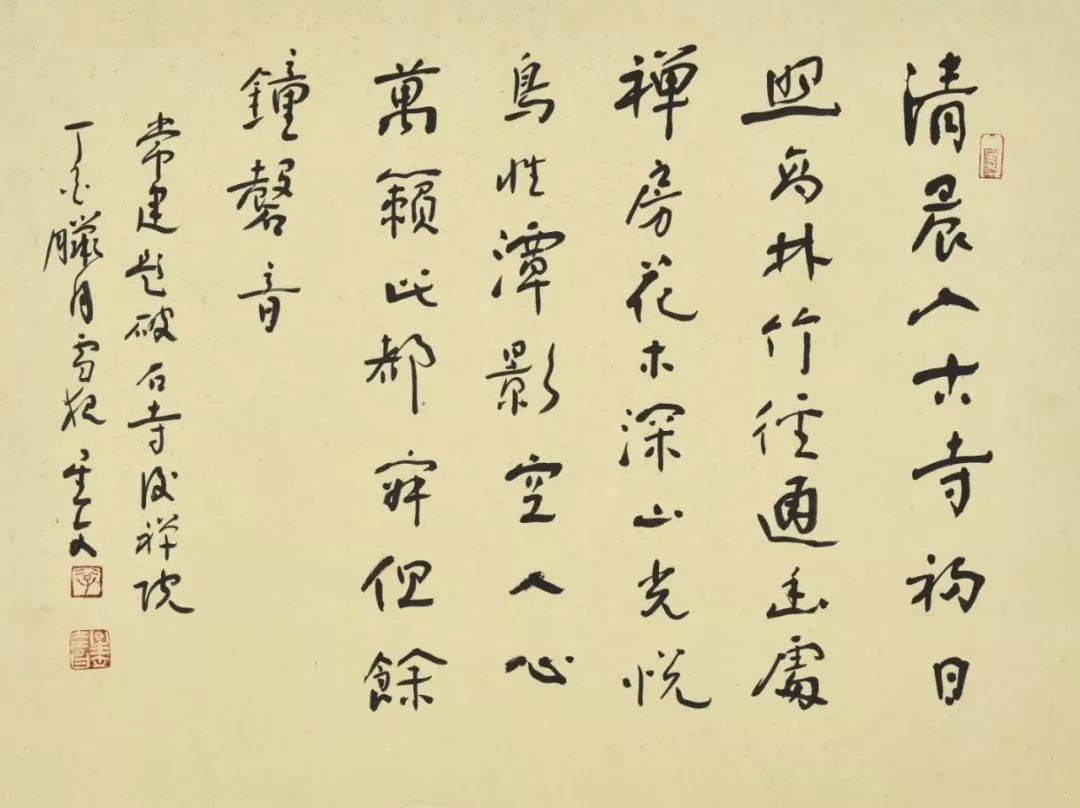 清晨入古寺初日
照高林竹徑通幽處
禅房花木深山光悦
鳥性潭影空人心
萬籟此都寂但餘
鐘磬音
常建題破石寺後禅院
丁臘月雪夜